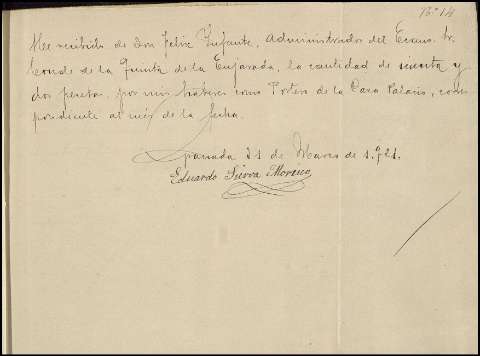 Nº 14
He recibido de Don Felix Infante, Administrador del Excmo. Sr.
Conde de la Quinta de la Enjarada, la cantidad de sesenta y
dos pesetas, por mis haberes como Portero de la Casa Palacio, corres
pondiente al mes de la fecha.
Granada 31 de Marzo de 1.921.
Eduardo Sierra Moreno